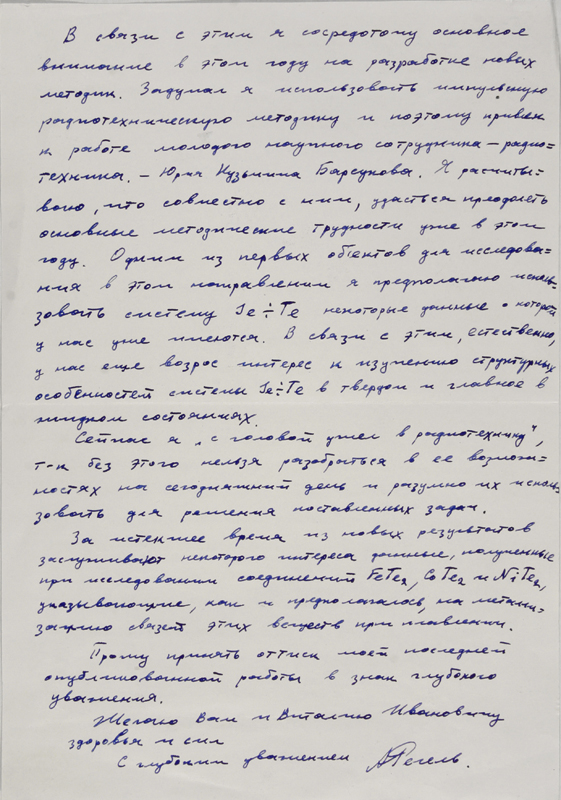 В связи с этим я сосредоточу основное
внимание в этом году на разработке новых
методик. Задумал я использовать импульсную
радиотехническую методику и поэтому привлек
к работе молодого научного сотрудника – радио-
техника. – Юрия Кузьмича Барсукова. Я расчиты-
ваю, что совместно с ним, удасться преодолеть
основные методические трудности уже в этом
году. Одним из первых объектов для исследова-
ния в этом направлении я предполагаю исполь-
зовать систему Se÷Te некоторые данные о которой
у нас уже имеются. В связи с этим, естественно,
у нас еще возрос интерес к изучению структурных
особенностей системы Se÷Te в твердом и главное в
жидком состояниях.
Сейчас я „с головой ушел в радиотехнику",
т-к без этого нельзя разобраться в ее возмож-
ностях на сегодняшний день и разумно их исполь-
зовать для решения поставленных задач.
За истекшее время из новых результатов
заслуживают некоторого интереса данные, полученные
при исследовании соединений FeTe2, CoTe2 и NiTe2,
указывающие, как и предполагалось, на метали-
зацию связей этих веществ при плавлении.
Прошу принять оттиск моей последней
опубликованной работы в знак глубокого
уважения.
Желаю Вам и Виталию Ивановичу
здоровья и сил
С глубоким уважением АРегель.